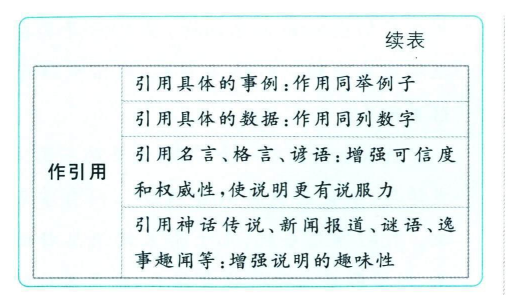 续表
引用具体的事例:作用同举例子
引用具体的数据:作用同列数字
作引用
引用名言、格言、谚语:增强可信度
和权威性,使说明更有说服力
引用神话传说、新闻报道、谜语、逸
事趣闻等:增强说明的趣味性